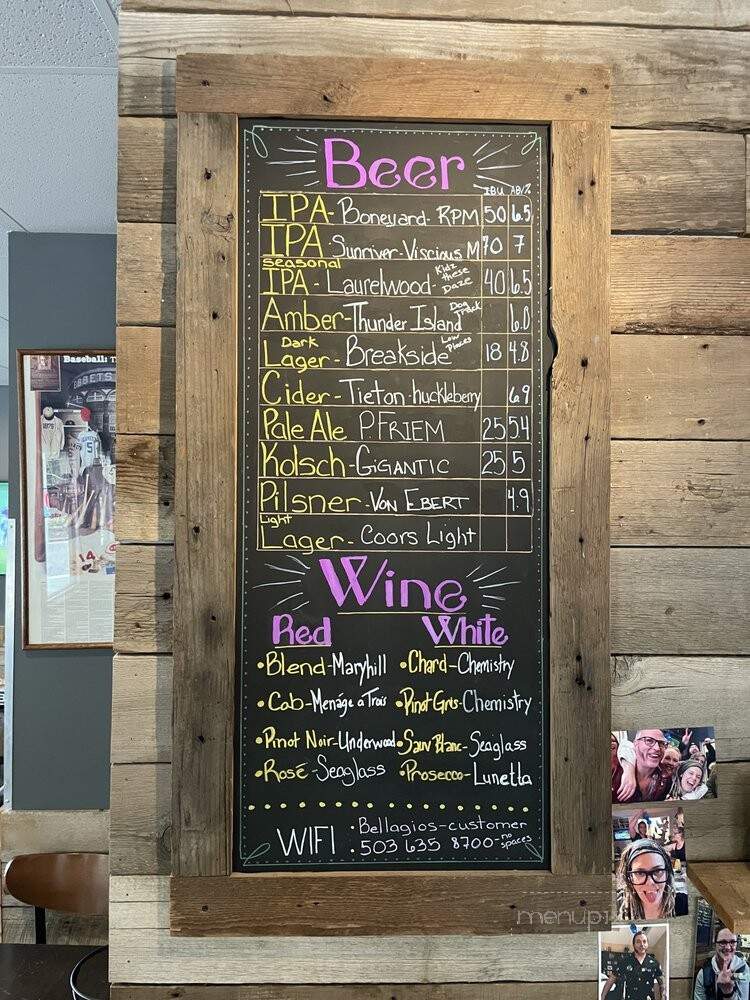 Beer
IBU ABV%
IPA- Boneyard- RPM 50 6.5
IPA - Sunriver-Viscious M 70 7
seasonal
IPA - Laurelwood- Kidz these Daze 40 6.5
Amber-Thunder Island Dog Track 6.0
Dark
Lager- Breakside Low Places 18 4.8
Cider-Tieton-huckleberry 6.9
Pale Ale PFRIEM 25 5.4
Kolsch-GIGANTIC 25 5
Pilsner-VON EBERT 4.9
Light
Lager- Coors Light
Wine
Red White
•Blend-Maryhill •Chard-Chemistry
•Cab-Menáge a Trois •Pinot Gris-Chemistry
•Pinot Noir-Underwood •Sauv Blanc-Seaglass
•Rosé-Seaglass •Prosecco-Lunetta
WIFI :Bellagios-customer
:503 635 8700-no spaces
Baseball: T
EBBETS
5
14
menup